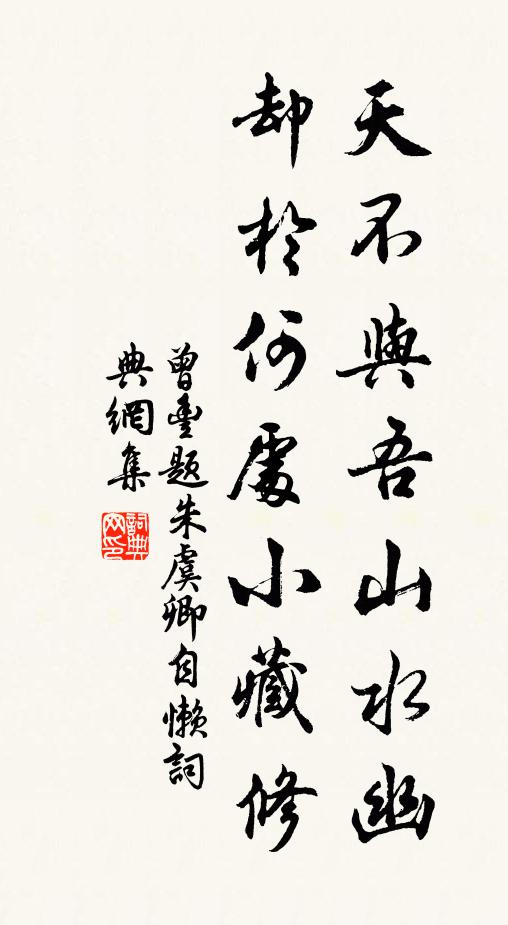 天不與吾山水幽
却於何處小藏修
曾豊題朱虞卿自懶詞
典網集
詞典網印